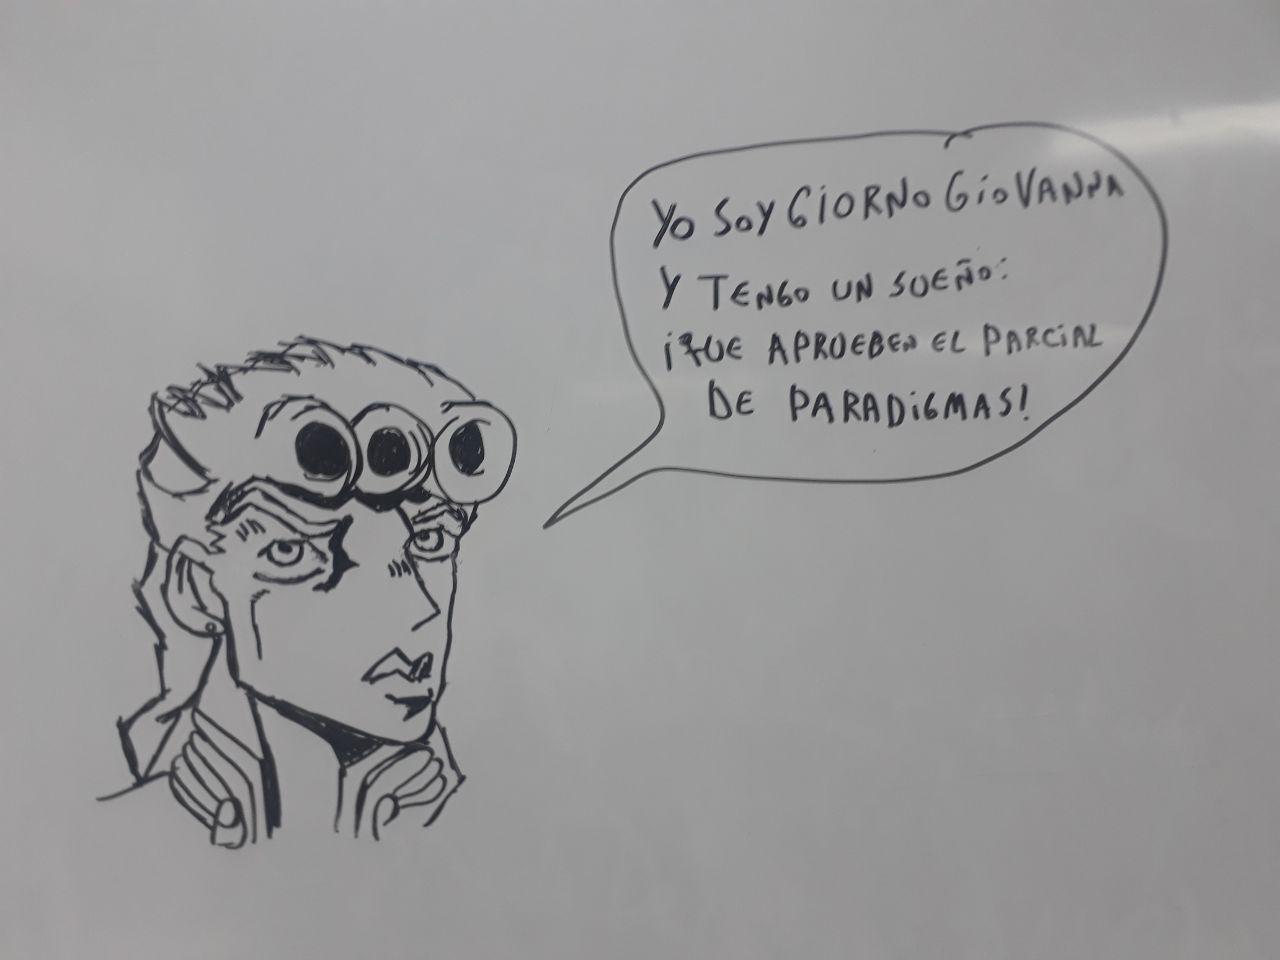 YO SOY GIORNO GIOVANNA
Y TENGO UN SUEÑO:
¡QUE APRUEBEN EL PARCIAL
DE PARADIGMAS!